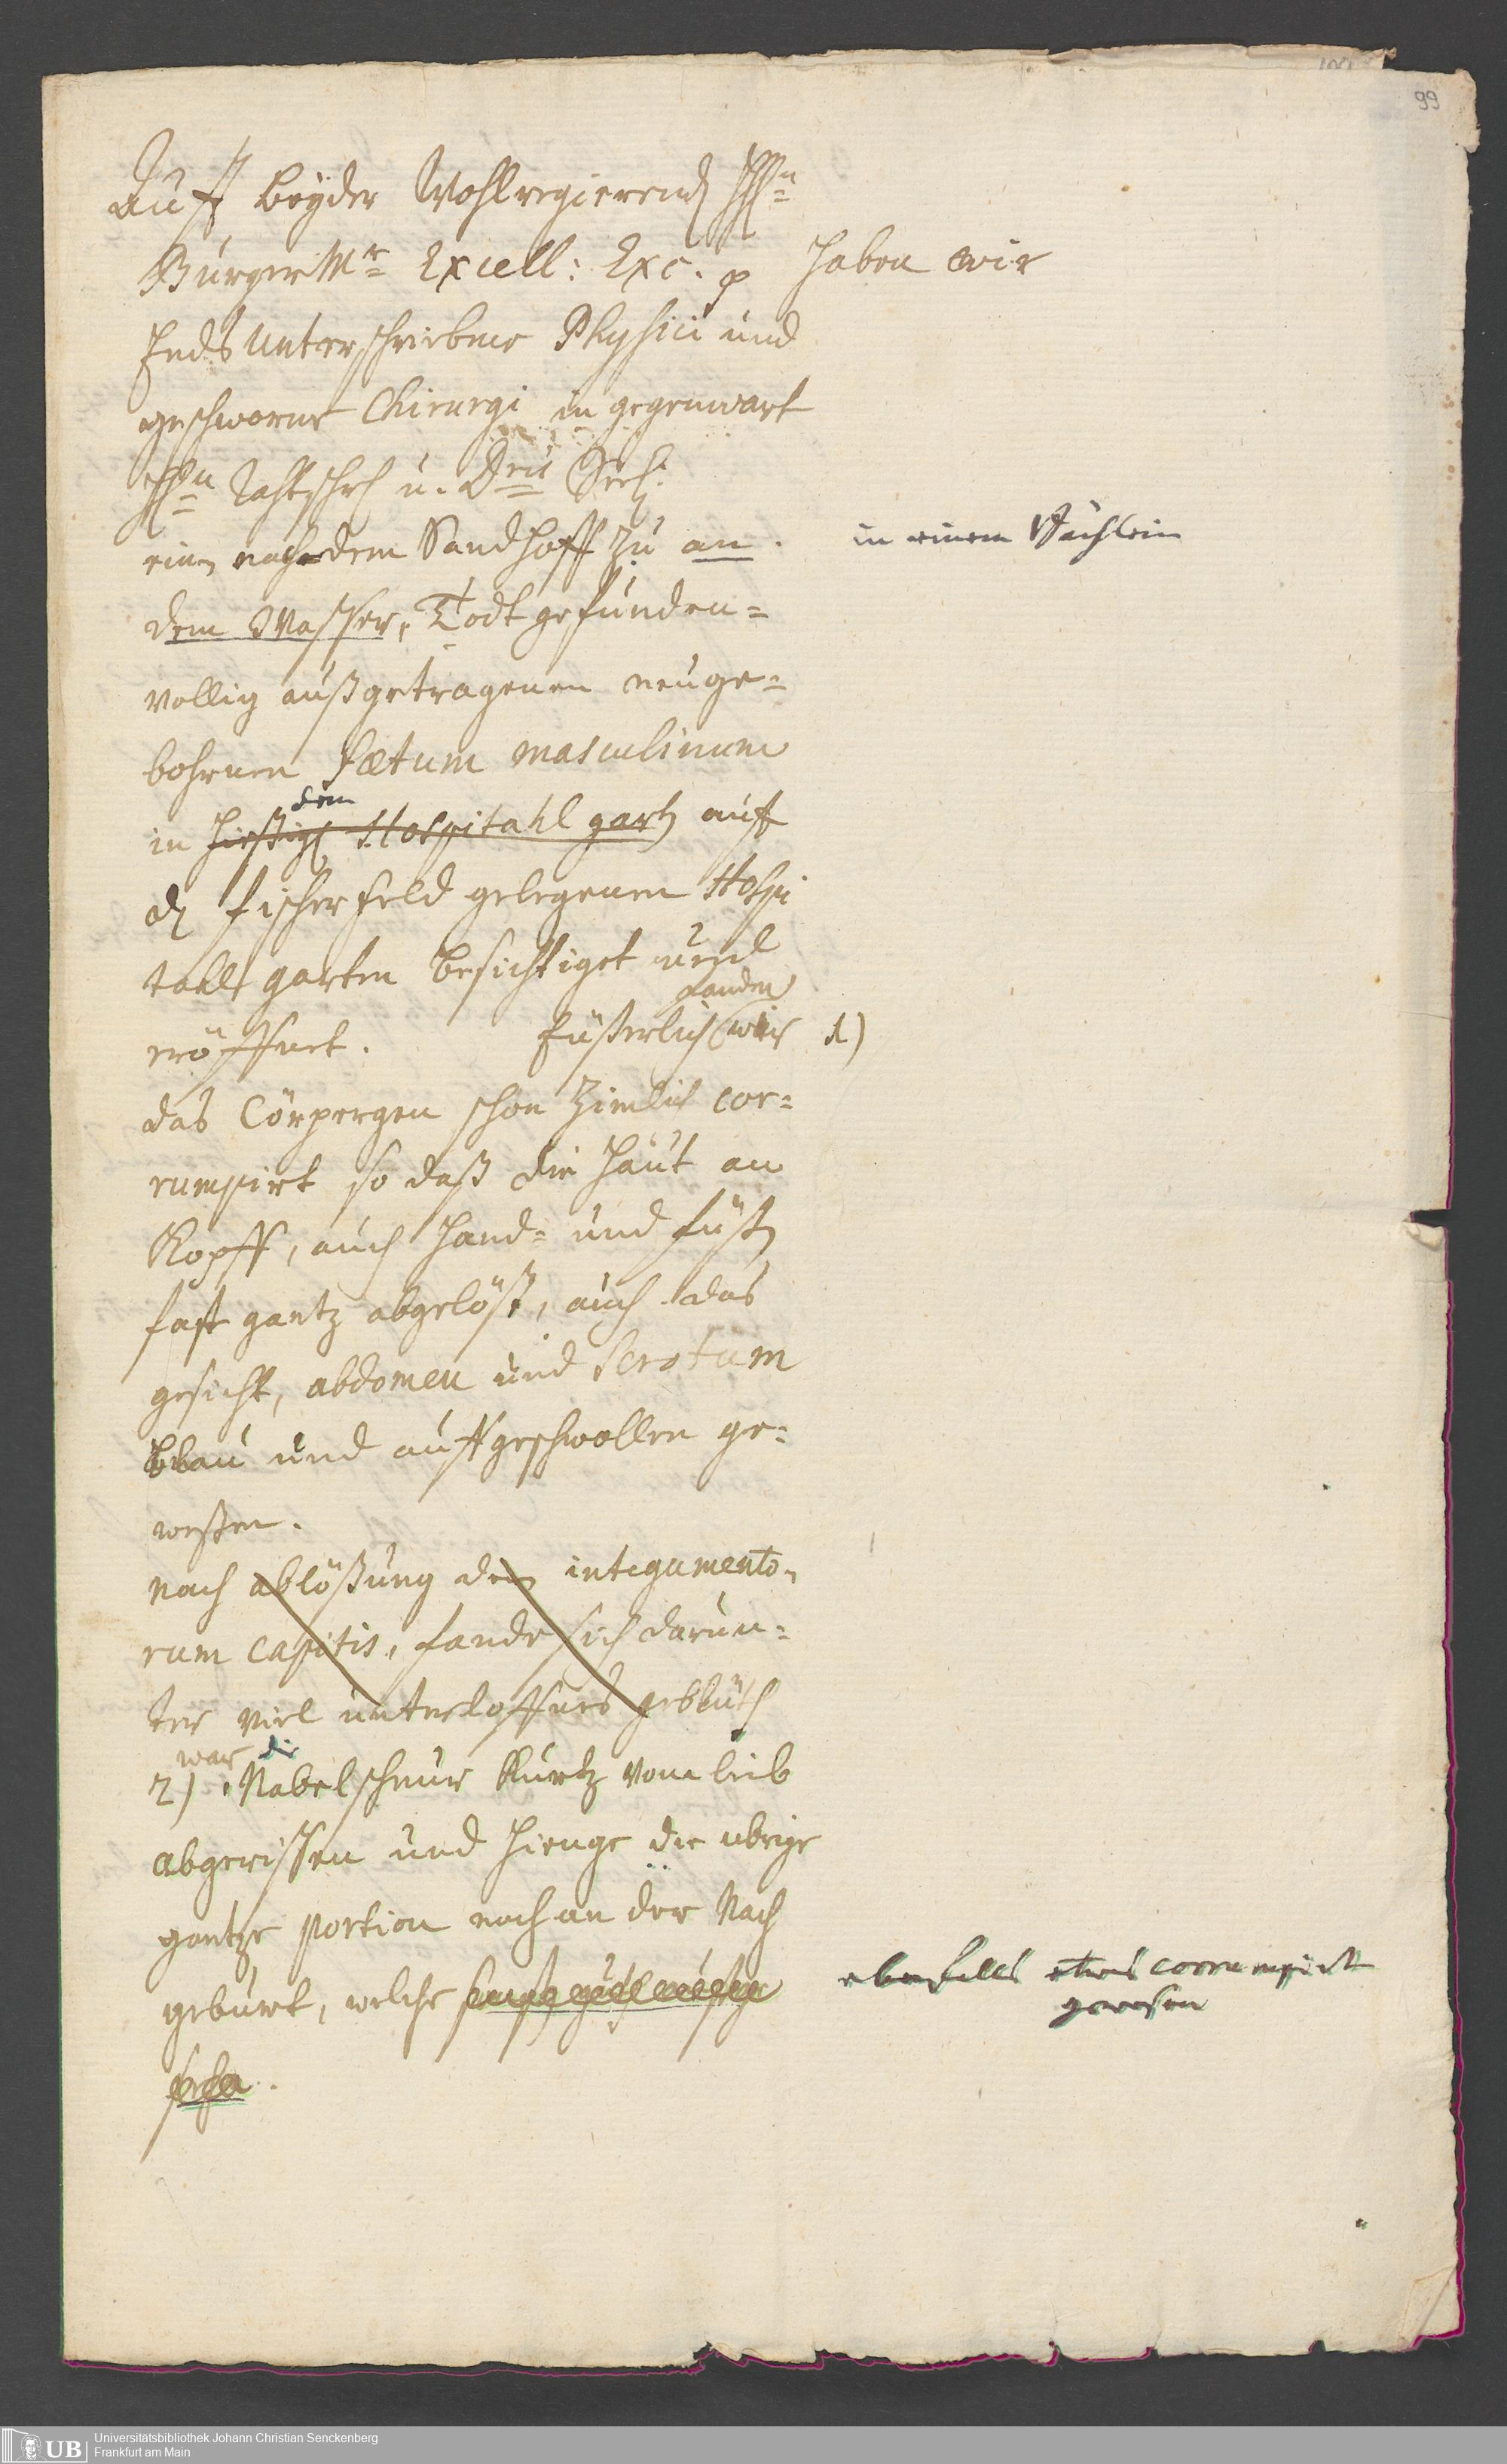 99
Auff beyder Wohlregierend HHn
BurgerMr Excell: Exc. p haben wir
Ends unterschriebene Physici und
geschworne Chirurgi in gegenwart
HHn u.
einen nach dem Sandhoff zu an in einem Bächlein
dem Wasser, Todt gefunden=
vollig außgetragenen neuge=
bohrnen fœtum masculinum
dem
in hießigen Hospitahl garten auff
dem fischerfeld gelegenen Hospi
tahls garten besichtiget und
fanden
eröffnet. Eußerlich wir 1)
das Cörpergen schon zimlich cor=
rumpirt so daß die Haut am
Kopff, auch Händ= und füßen
fast gantz abgelöst, auch das
gesicht, abdomen und Scrotum
blau und auffgeschwollen ge=
weßen.
nach ablößung den integumento=
rum capitis, fande sich darun=
ter viel unterloffenes geblüth
war die
2) Nabelschnur kurtz vom leib
abgerissen und hienge die ubrige
gantze portion noch an der Nach
geburt, welche ebenfalls etwas corrumpirt
gewesen
Universitätsbibliothek Johann Christian Senckenberg
Frankfurt am Main
UB